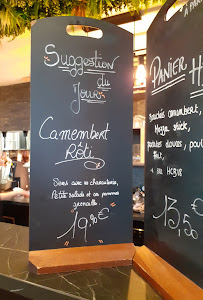 Suggestion
du
Jour
Camembert
Rôti
Servi avec sa charcuterie,
Petite salade et ses pommes
grenaille.
19,90 €
À PAR
PANIER H
Bouchées camembert,
Mozza stick,
patates douces, poul
frit,
13,50